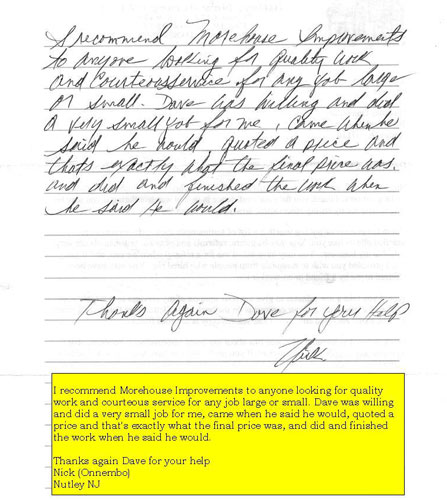 I recommend Morehouse Improvements
to anyone looking for quality work
and courteous service for any job large
or small. Dave was willing and did
a very small job for me, came when he
said he would, quoted a price and
that's exactly what the final price was.
and did and finished the work when
he said he would.
Thanks Again Dave for your Help
Nick
I recommend Morehouse Improvements to anyone looking for quality
work and courteous service for any job large or small. Dave was willing
and did a very small job for me, came when he said he would, quoted a
price and that's exactly what the final price was, and did and finished
the work when he said he would.
Thanks again Dave for your help
Nick (Onnembo)
Nutley NJ